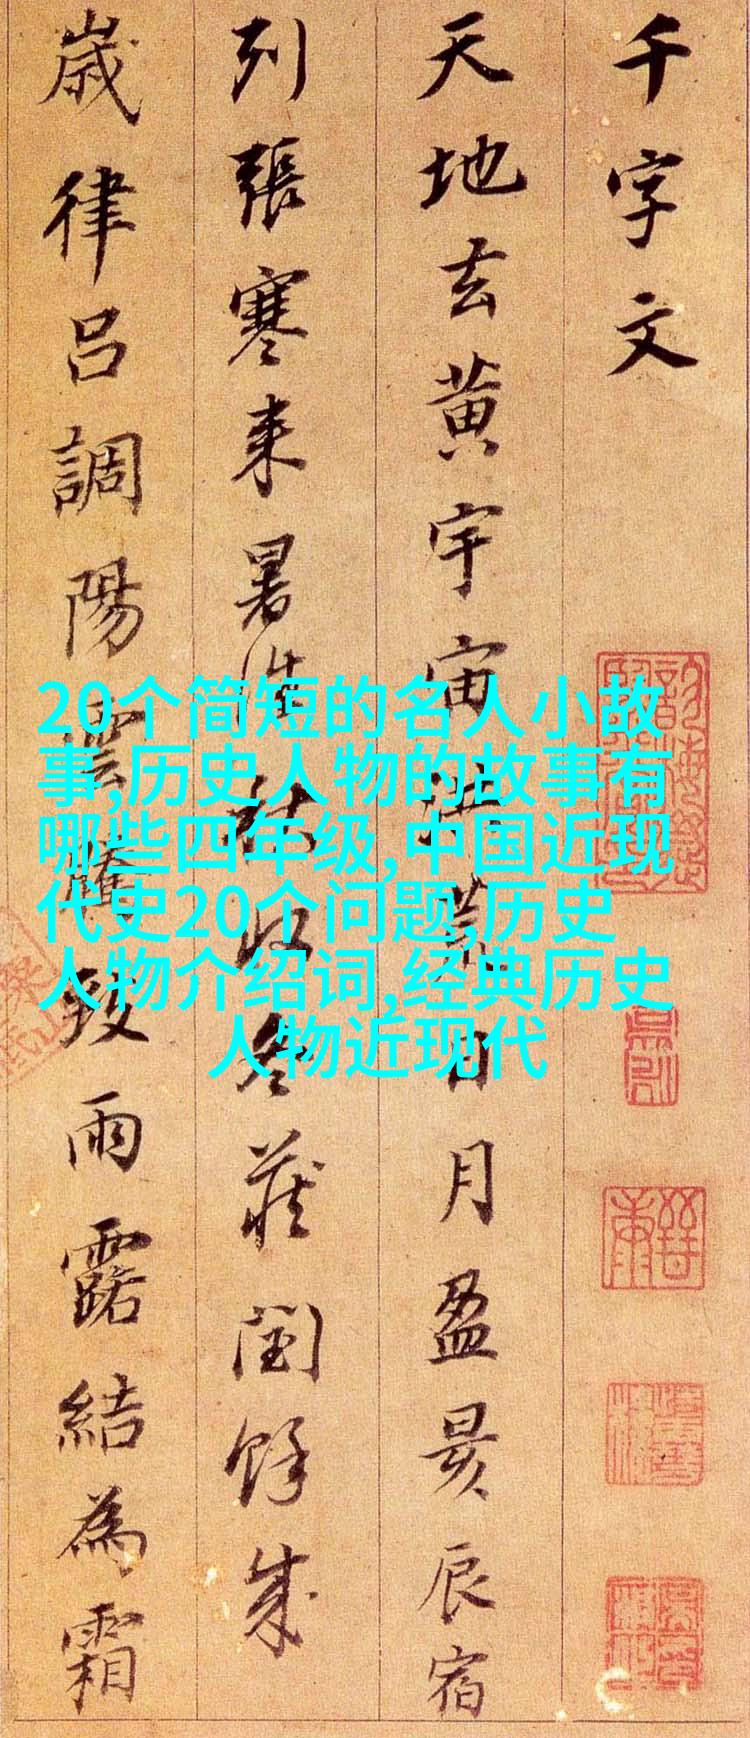 千字文
天地玄黄宇宙洪荒日月盈昃辰宿
列張寒来暑往秋收冬藏閏餘成
歲律呂調陽雲騰致雨露結為霜
20个简短的名人小故
事,历史人物的故事有
哪些四年级,中国近现
代史20个问题,历史
人物介绍词,经典历史
人物近现代